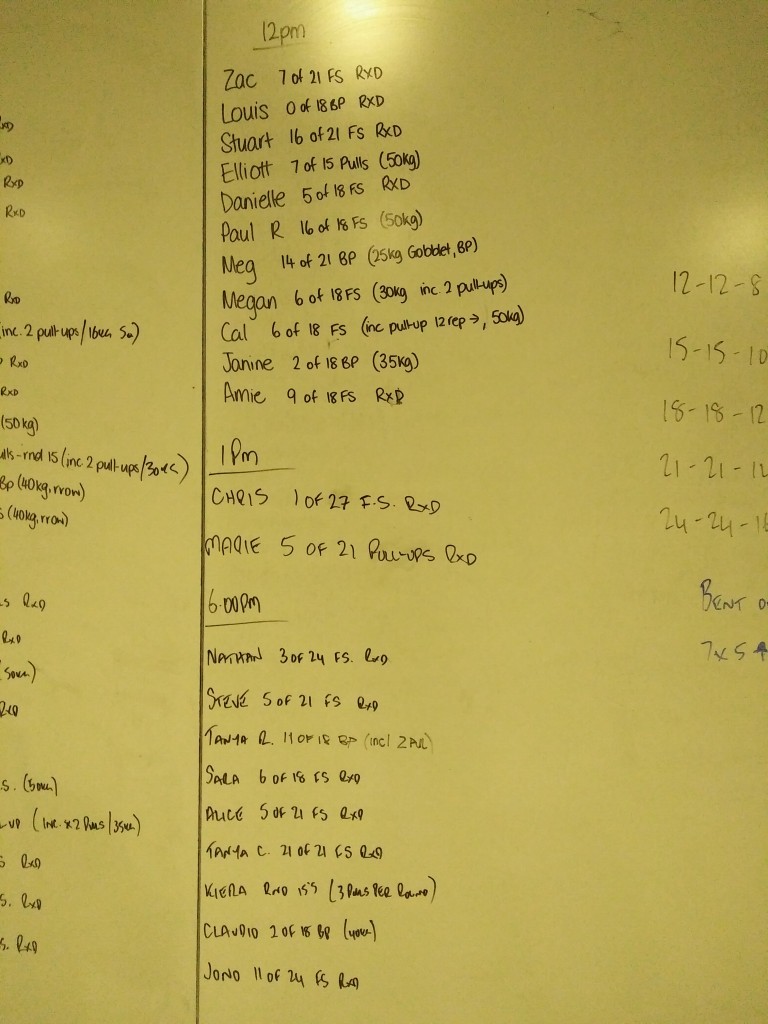 RXD
RXD
RXD
RXD
RXD
inc. 2 pull-ups/16KG
RXD
RXD
(50kg)
rnd 15 (inc. 2 pull-ups/30KG)
BP (40kg, rrow)
(40kg, rrow)
RXD
RXD
(50KG)
RXD
S. (50KG)
UP (INC. x2 PULLS/35KG)
RXD
S. RXD
S. RXD
12pm
Zac 7 of 21 FS RXD
Louis 0 of 18 BP RXD
Stuart 16 of 21 FS RXD
Elliott 7 of 15 Pulls (50kg)
Danielle 5 of 18 FS RXD
Paul R 16 of 18 FS (50kg)
Meg 14 of 21 BP (25kg Gobblet, BP)
Megan 6 of 18 FS (30kg inc. 2 pull-ups)
Cal 6 of 18 FS (inc pull-up 12 rep →, 50kg)
Janine 2 of 18 BP (35kg)
Amie 9 of 18 FS RXD
1Pm
CHRIS 1 OF 27 F.S. RXD
MARIE 5 OF 21 PULL-UPS RXD
6.00Pm
NATHAN 3 OF 24 FS. RXD
STEVE 5 OF 21 FS RXD
TANYA R. 11 OF 18 BP (incl 2 PUL)
SARA 6 OF 18 FS RXD
ALICE 5 OF 21 FS RXD
TANYA C. 21 OF 21 FS RXD
KIERA RND 15'S (3 PULLS PER ROUND)
CLAUDIO 2 OF 18 BP (40KG)
JONO 11 OF 24 FS RXD
12-12-8
15-15-10
18-18-12
21-21-
24-24-16
BENT
7x5 ↑